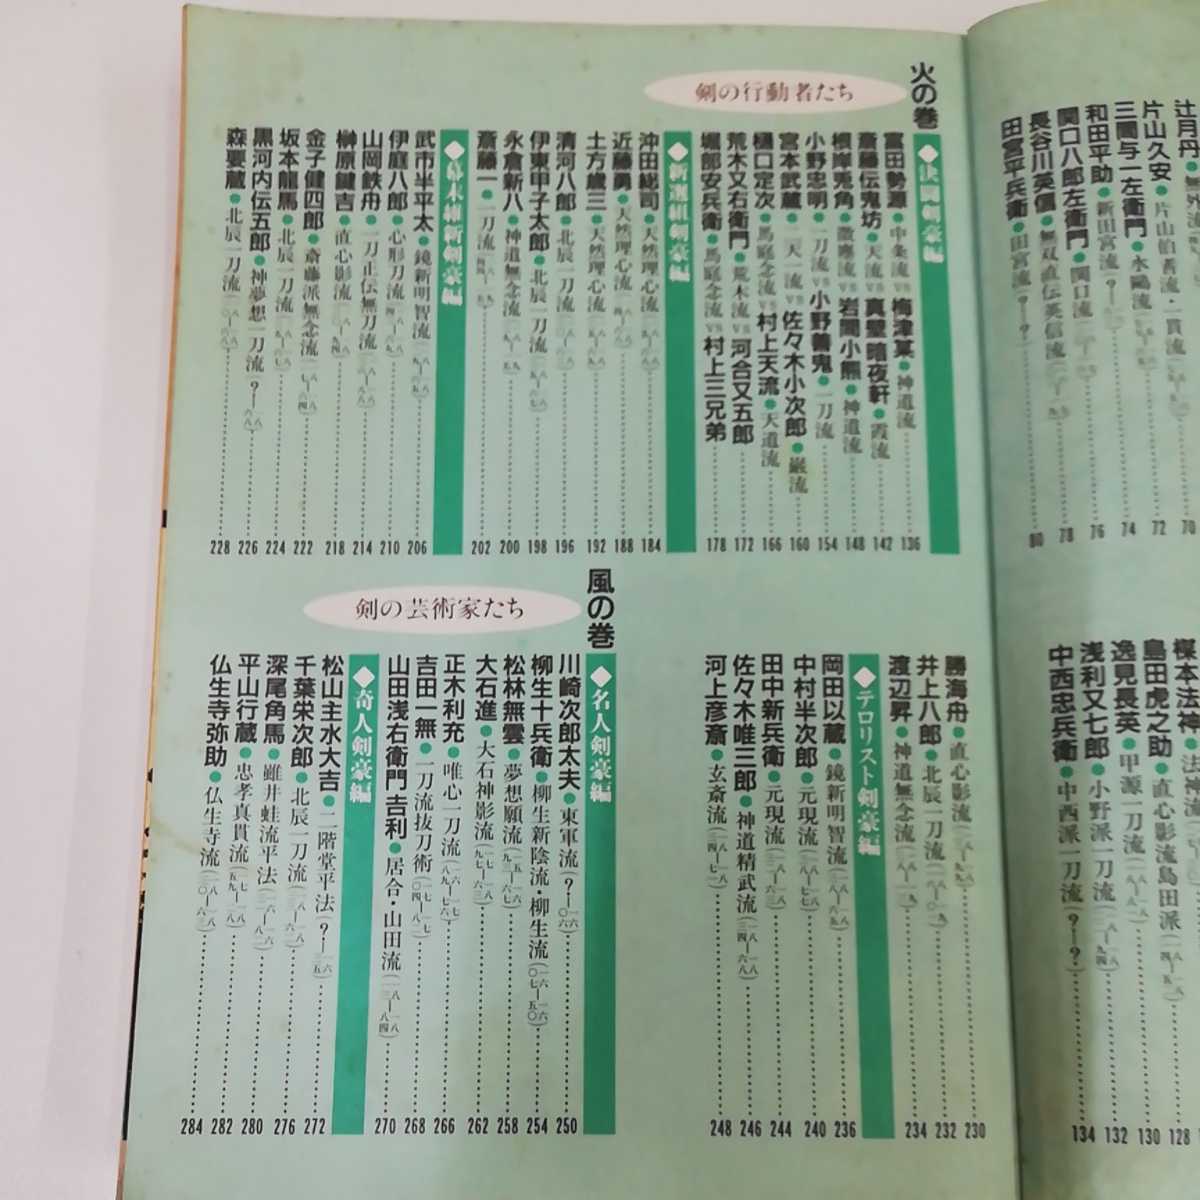 辻月丹●無外流
70
片山久安●片山伯耆流・一貫流
72
三間与一左衛門●水鷗流
74
和田平助●新田宮流
76
関口八郎左衛門●関口流
78
長谷川英信●無双直伝英信流
80
田宮平兵衛●田宮流（？―？）
楳本法神●法神流
128
島田虎之助●直心影流島田派
130
逸見長英●甲源一刀流
132
浅利又七郎●小野派一刀流
134
中西忠兵衛●中西派一刀流（？―？）
火の巻
剣の行動者たち
◆決闘剣豪編
富田勢源●中条流VS梅津某●神道流
136
斎藤伝鬼坊●天流VS真壁暗夜軒●霞流
142
根岸兎角●微塵流VS岩間小熊●神道流
148
小野忠明●一刀流VS小野善鬼●一刀流
154
宮本武蔵●二天一流VS佐々木小次郎●巌流
160
樋口定次●馬庭念流VS村上天流●天道流
166
荒木又右衛門●荒木流VS河合又五郎
172
堀部安兵衛●馬庭念流VS村上三兄弟
178
◆新選組剣豪編
沖田総司●天然理心流
184
近藤勇●天然理心流
188
土方歳三●天然理心流
192
清河八郎●北辰一刀流
196
伊東甲子太郎●北辰一刀流
198
永倉新八●神道無念流
200
斎藤一●一刀流
202
◆幕末維新剣豪編
武市半平太●鏡新明智流
206
伊庭八郎●心形刀流
210
山岡鉄舟●一刀正伝無刀流
214
榊原鍵吉●直心影流
218
金子健四郎●斎藤派無念流
222
坂本龍馬●北辰一刀流
224
黒河内伝五郎●神夢想一刀流
226
森要蔵●北辰一刀流
228
勝海舟●直心影流
230
井上八郎●北辰一刀流
232
渡辺昇●神道無念流
234
◆テロリスト剣豪編
岡田以蔵●鏡新明智流
236
中村半次郎●元現流
240
田中新兵衛●元現流
244
佐々木唯三郎●神道精武流
246
河上彦斎●玄斎流
248
風の巻
剣の芸術家たち
◆名人剣豪編
川崎次郎太夫●東軍流
250
柳生十兵衛●柳生新陰流・柳生流（一六〇七―一六五〇）
254
松林無雲●夢想願流
258
大石進●大石神影流（一七九七―一八六三）
262
正木利充●唯心一刀流
266
吉田一無●一刀流抜刀術
268
山田浅右衛門吉利●居合・山田流（一八一三―一八八四）
270
◆奇人剣豪編
松山主水大吉●二階堂平法（？―一六三五）
272
千葉栄次郎●北辰一刀流
276
深尾角馬●雖井蛙流平法
280
平山行蔵●忠孝真貫流
282
仏生寺弥助●仏生寺流
284